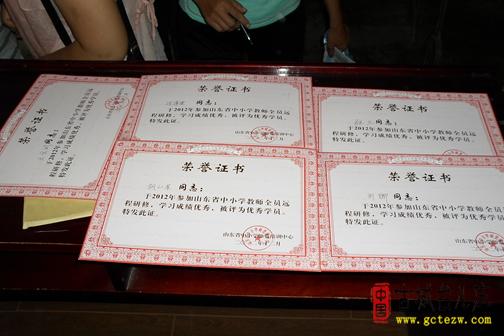 荣誉证书
同志：
于2012年参加山东省中小学教师全员远
程研修，学习成绩优秀，被评为优秀学员。
特发此证。
荣誉证书
同志：
于2012年参加山东省中小学教师全员远
程研修，学习成绩优秀，被评为优秀学员。
特发此证。
荣誉证书
同志：
于2012年参加山东省中小学教师全员远
程研修，学习成绩优秀，被评为优秀学员。
特发此证。
荣誉证书
同志：
于2012年参加山东省中小学教师全员远
程研修，学习成绩优秀，被评为优秀学员。
特发此证。
荣誉证书
同志：
于2012年参加山东省中小学教师全员远
程研修，学习成绩优秀，被评为优秀学员。
特发此证。
中国
www.gctezw.com